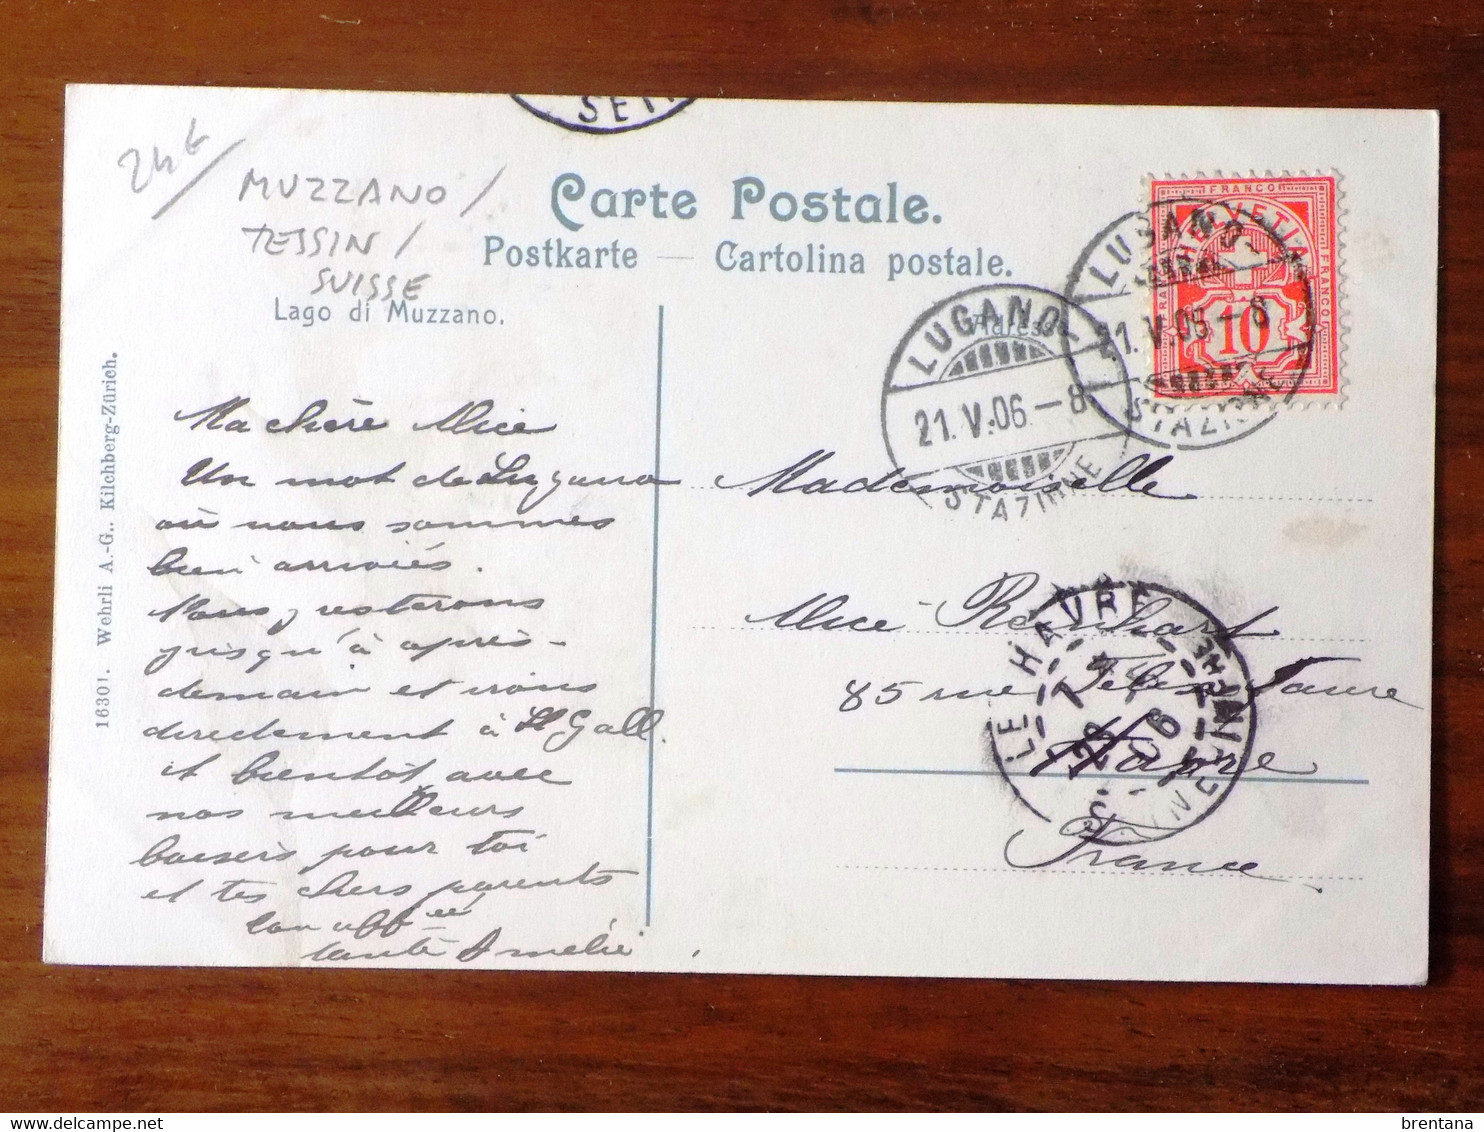 SET
24 €
MUZZANO /
TESSIN /
SUISSE
Carte Postale.
Postkarte — Cartolina postale.
Lago di Muzzano.
16301. Wehrli A.-G., Kilchberg-Zürich.
FRANCO
HELVETIA
FRANCO
10
LUGANO
21.V.06-8
STAZIONE
LUGANO
21.V.06-8
STAZIONE
Ma chère Alice
Un mot de Lugano
où nous sommes
bien arrivés.
Nous y resterons
jusqu'à après-
demain et irons
directement à St Gall.
A bientôt avec
nos meilleurs
baisers pour toi
et tes chers parents
ton affée
tante Amélie
Mademoiselle
Alice Reinhart
85 rue Félix Faure
Havre
France
LE HAVRE
SEINE INFRE
brentana